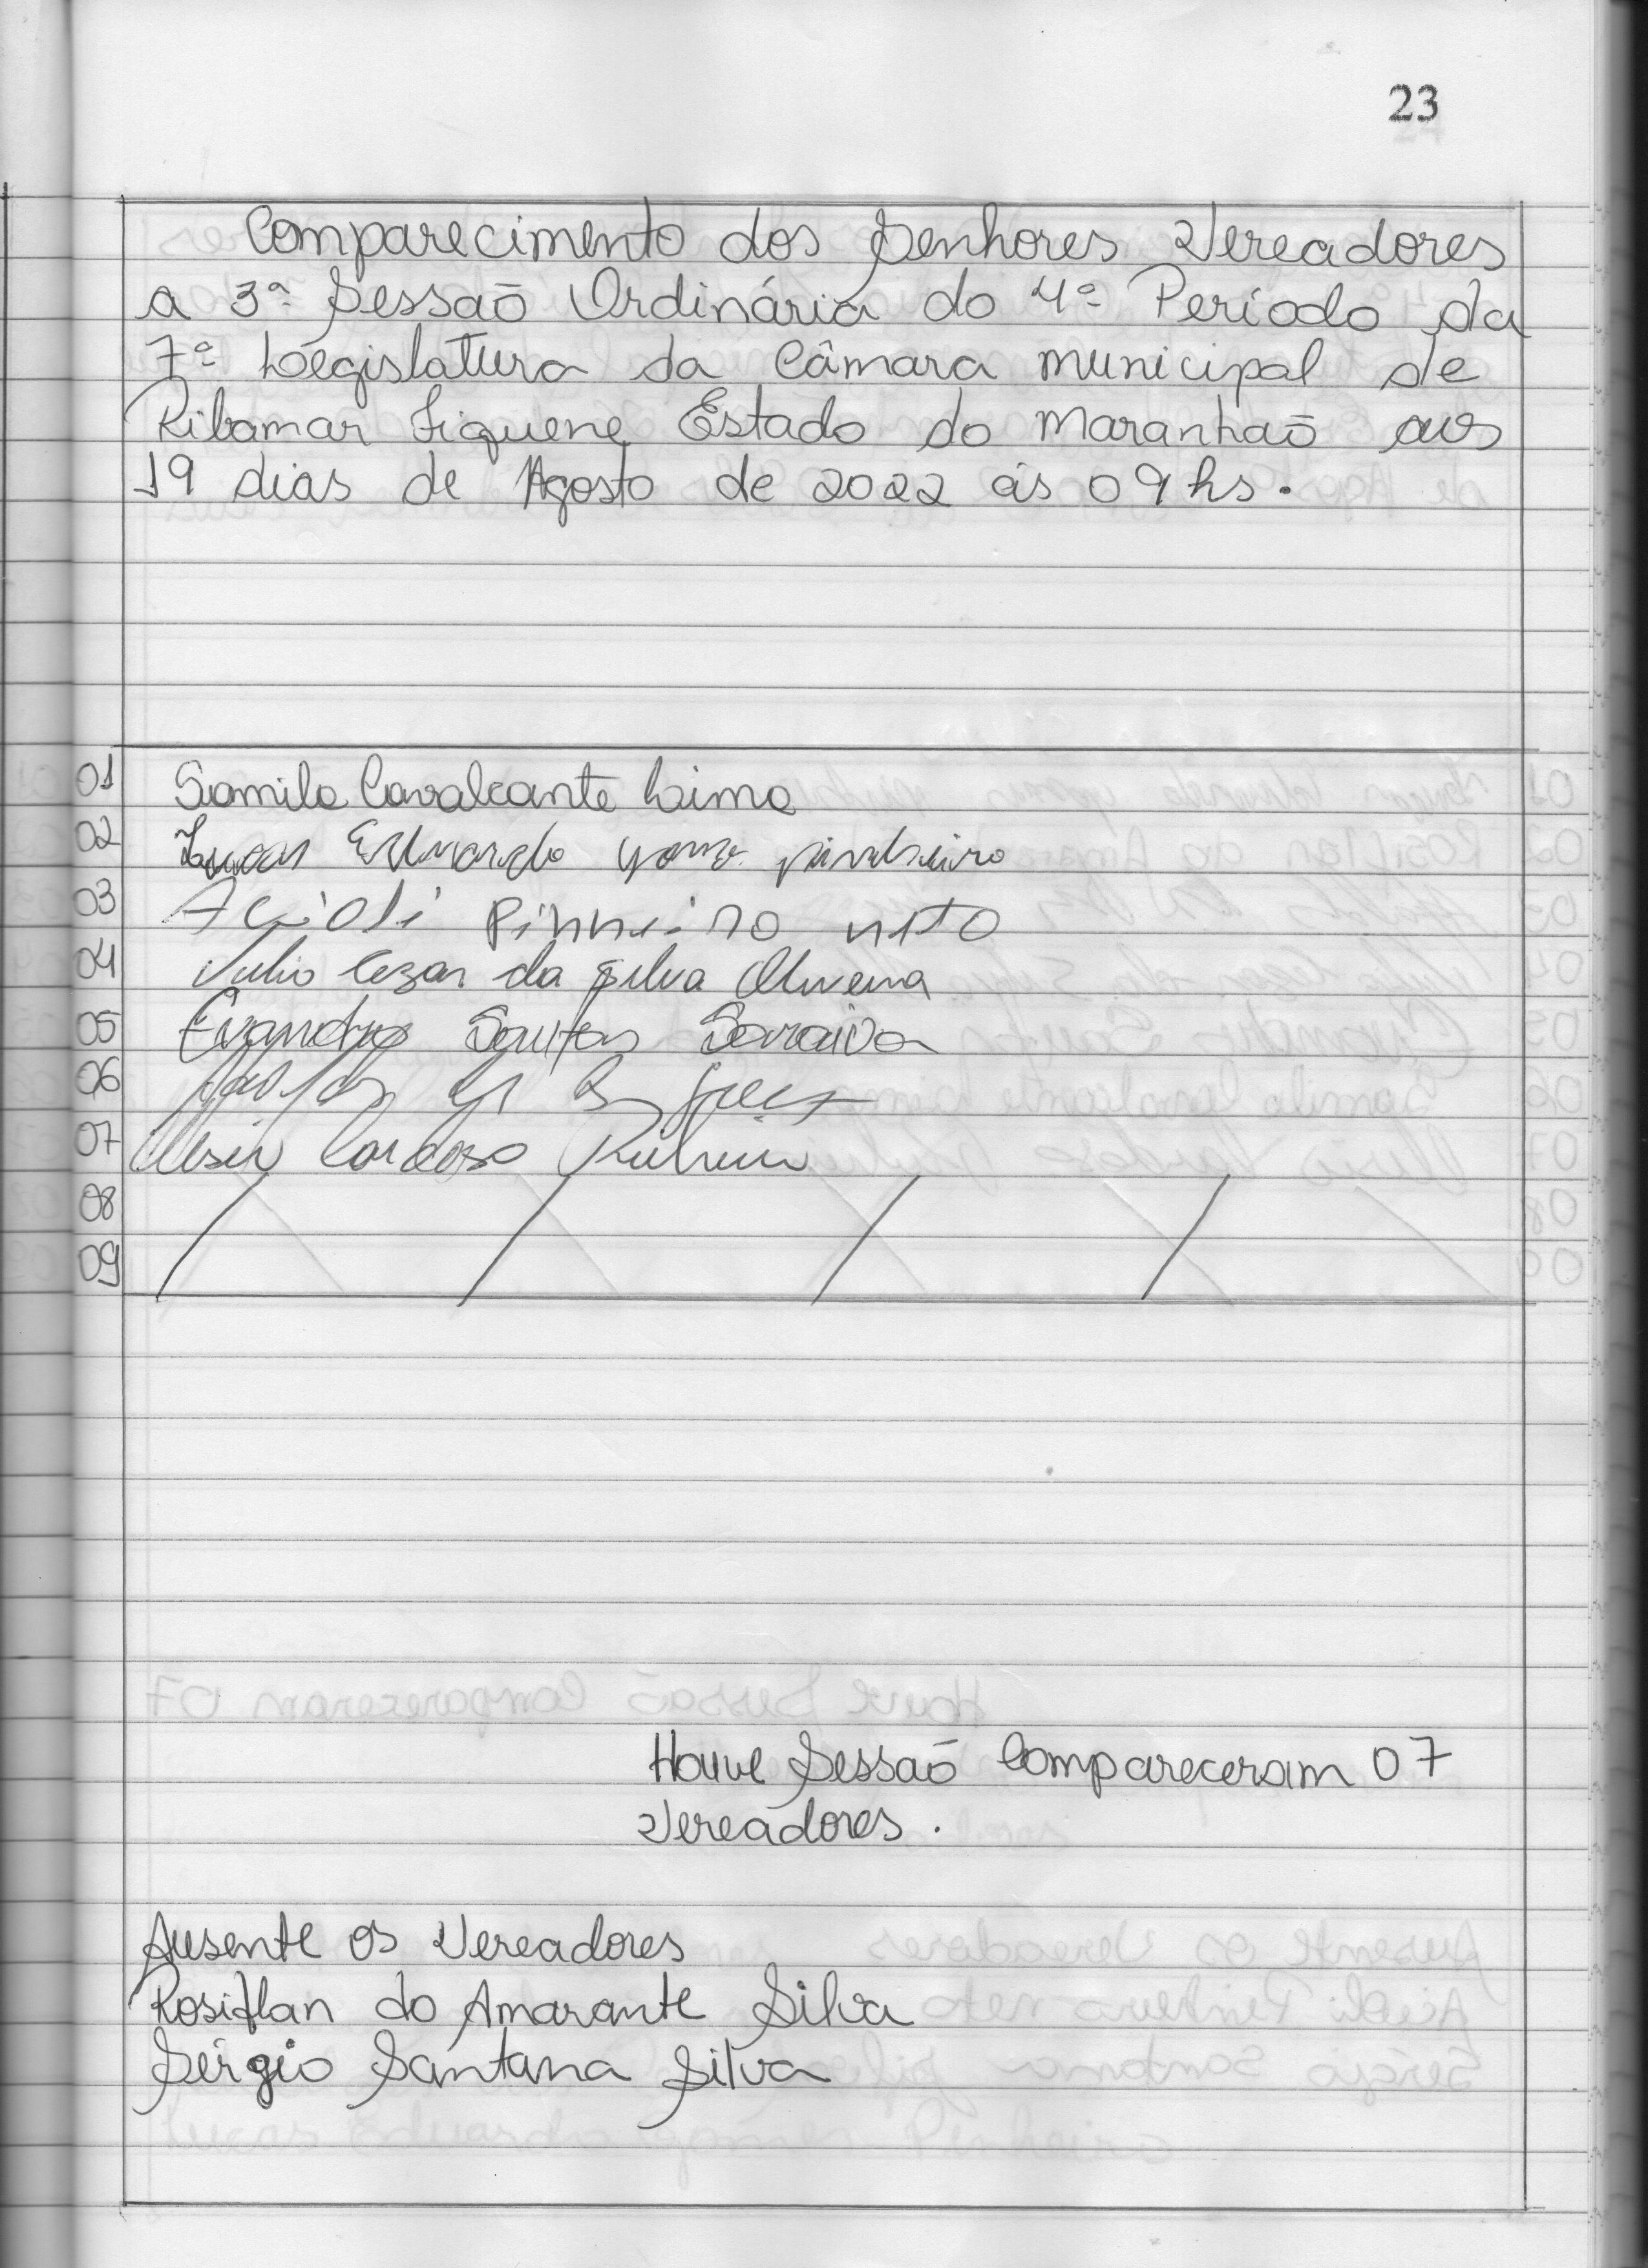 23
Comparecimento dos Senhores Vereadores
a 3ª Sessão Ordinária do 4º Período da
7ª Legislatura da Câmara municipal de
Ribamar Fiquene Estado do Maranhão aos
19 dias de Agosto de 2022 às 09 hs.
01 Samila Cavalcante Lima
02 Lucas Eduardo pinheiro
03 Acioli Pinheiro neto
04 Julio Cezar da Silva Oliveira
05 Evandro Santos Saraiva
06
07 Cardoso
08
09
Houve Sessão Compareceram 07
Vereadores.
Ausente os Vereadores
Rosiflan do Amarante Silva
Sérgio Santana Silva